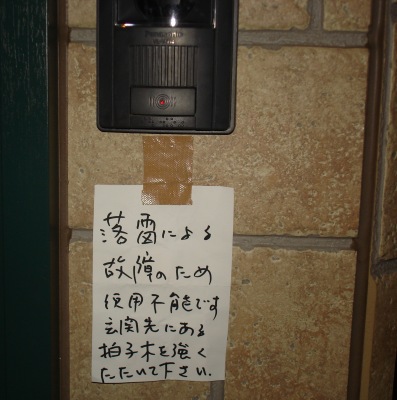 Panasonic
落雷による
故障のため
使用不能です
玄関先にある
拍子木を強く
たたいて下さい.